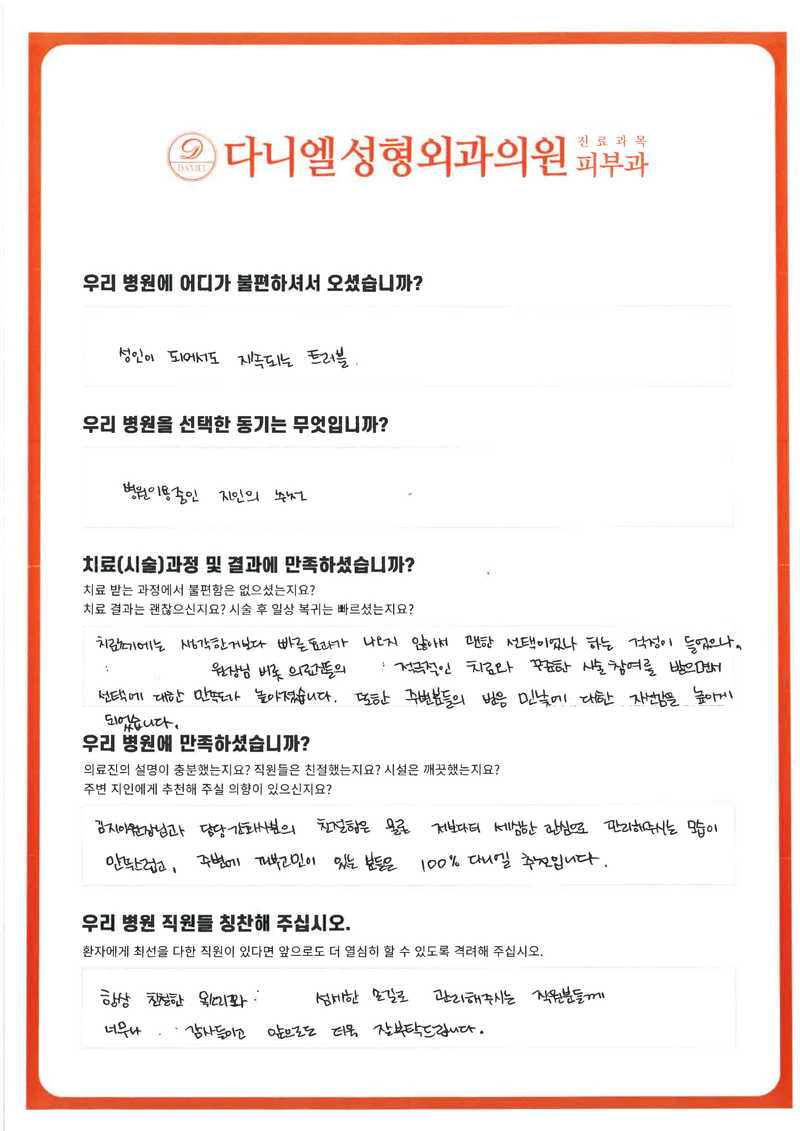 DANIEL
다니엘성형외과의원
진료과목
피부과
우리 병원에 어디가 불편하셔서 오셨습니까?
성인이 되어서도 지속되는 트러블.
우리 병원을 선택한 동기는 무엇입니까?
병원이용중인 지인의 추천
치료(시술)과정 및 결과에 만족하셨습니까?
치료 받는 과정에서 불편함은 없으셨는지요?
치료 결과는 괜찮으신지요? 시술 후 일상 복귀는 빠르셨는지요?
생각한거보다 빠른효과가 나오지 않아서 괜한 선택이었나 하는 걱정이 들었으나,
원장님 비롯 의료진들의 적극적인 치료와 꾸준한 시술참여를 받으면서
선택에 대한 만족도가 높아졌습니다. 또한 주변분들의 반응 민낯에 대한 자존감을 높이게
되었습니다.
우리 병원에 만족하셨습니까?
의료진의 설명이 충분했는지요? 직원들은 친절했는지요? 시설은 깨끗했는지요?
주변 지인에게 추천해 주실 의향이 있으신지요?
담당간호사분의 친절함은 물론 저보다더 세심한 관심으로 관리해주시는 모습이
만족스럽고, 주변에 피부고민이 있는 분들은 100% 다니엘 추천입니다.
우리 병원 직원들 칭찬해 주십시오.
환자에게 최선을 다한 직원이 있다면 앞으로도 더 열심히 할 수 있도록 격려해 주십시오.
항상 친절한 목소리와 섬세한 손길로 관리해주시는 직원분들께
너무나 감사드리고 앞으로도 더욱 잘부탁드립니다.